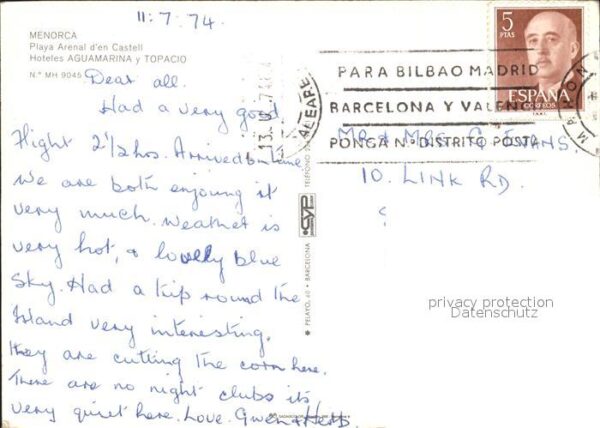 11:7:74.
MENORCA
Playa Arenal d'en Castell
Hoteles AGUAMARINA y TOPACIO
N.º MH 9045
Dear all.
Had a very good
flight 2½ hrs. Arrived on time
We are both enjoying it
very much. Weather is
very hot, & lovely blue
Sky. Had a trip round the
Island very interesting.
they are cutting the corn here.
There are no night clubs its
very quiet here. Love. Gwen &
PELAYO, 60 • BARCELONA
5
PTAS
ESPAÑA
CORREOS
PARA BILBAO MADRID
BARCELONA Y VALENC
PONGA N.º DISTRITO POSTA
Mr & Mrs G Evans
10. LINK RD.
privacy protection
Datenschutz